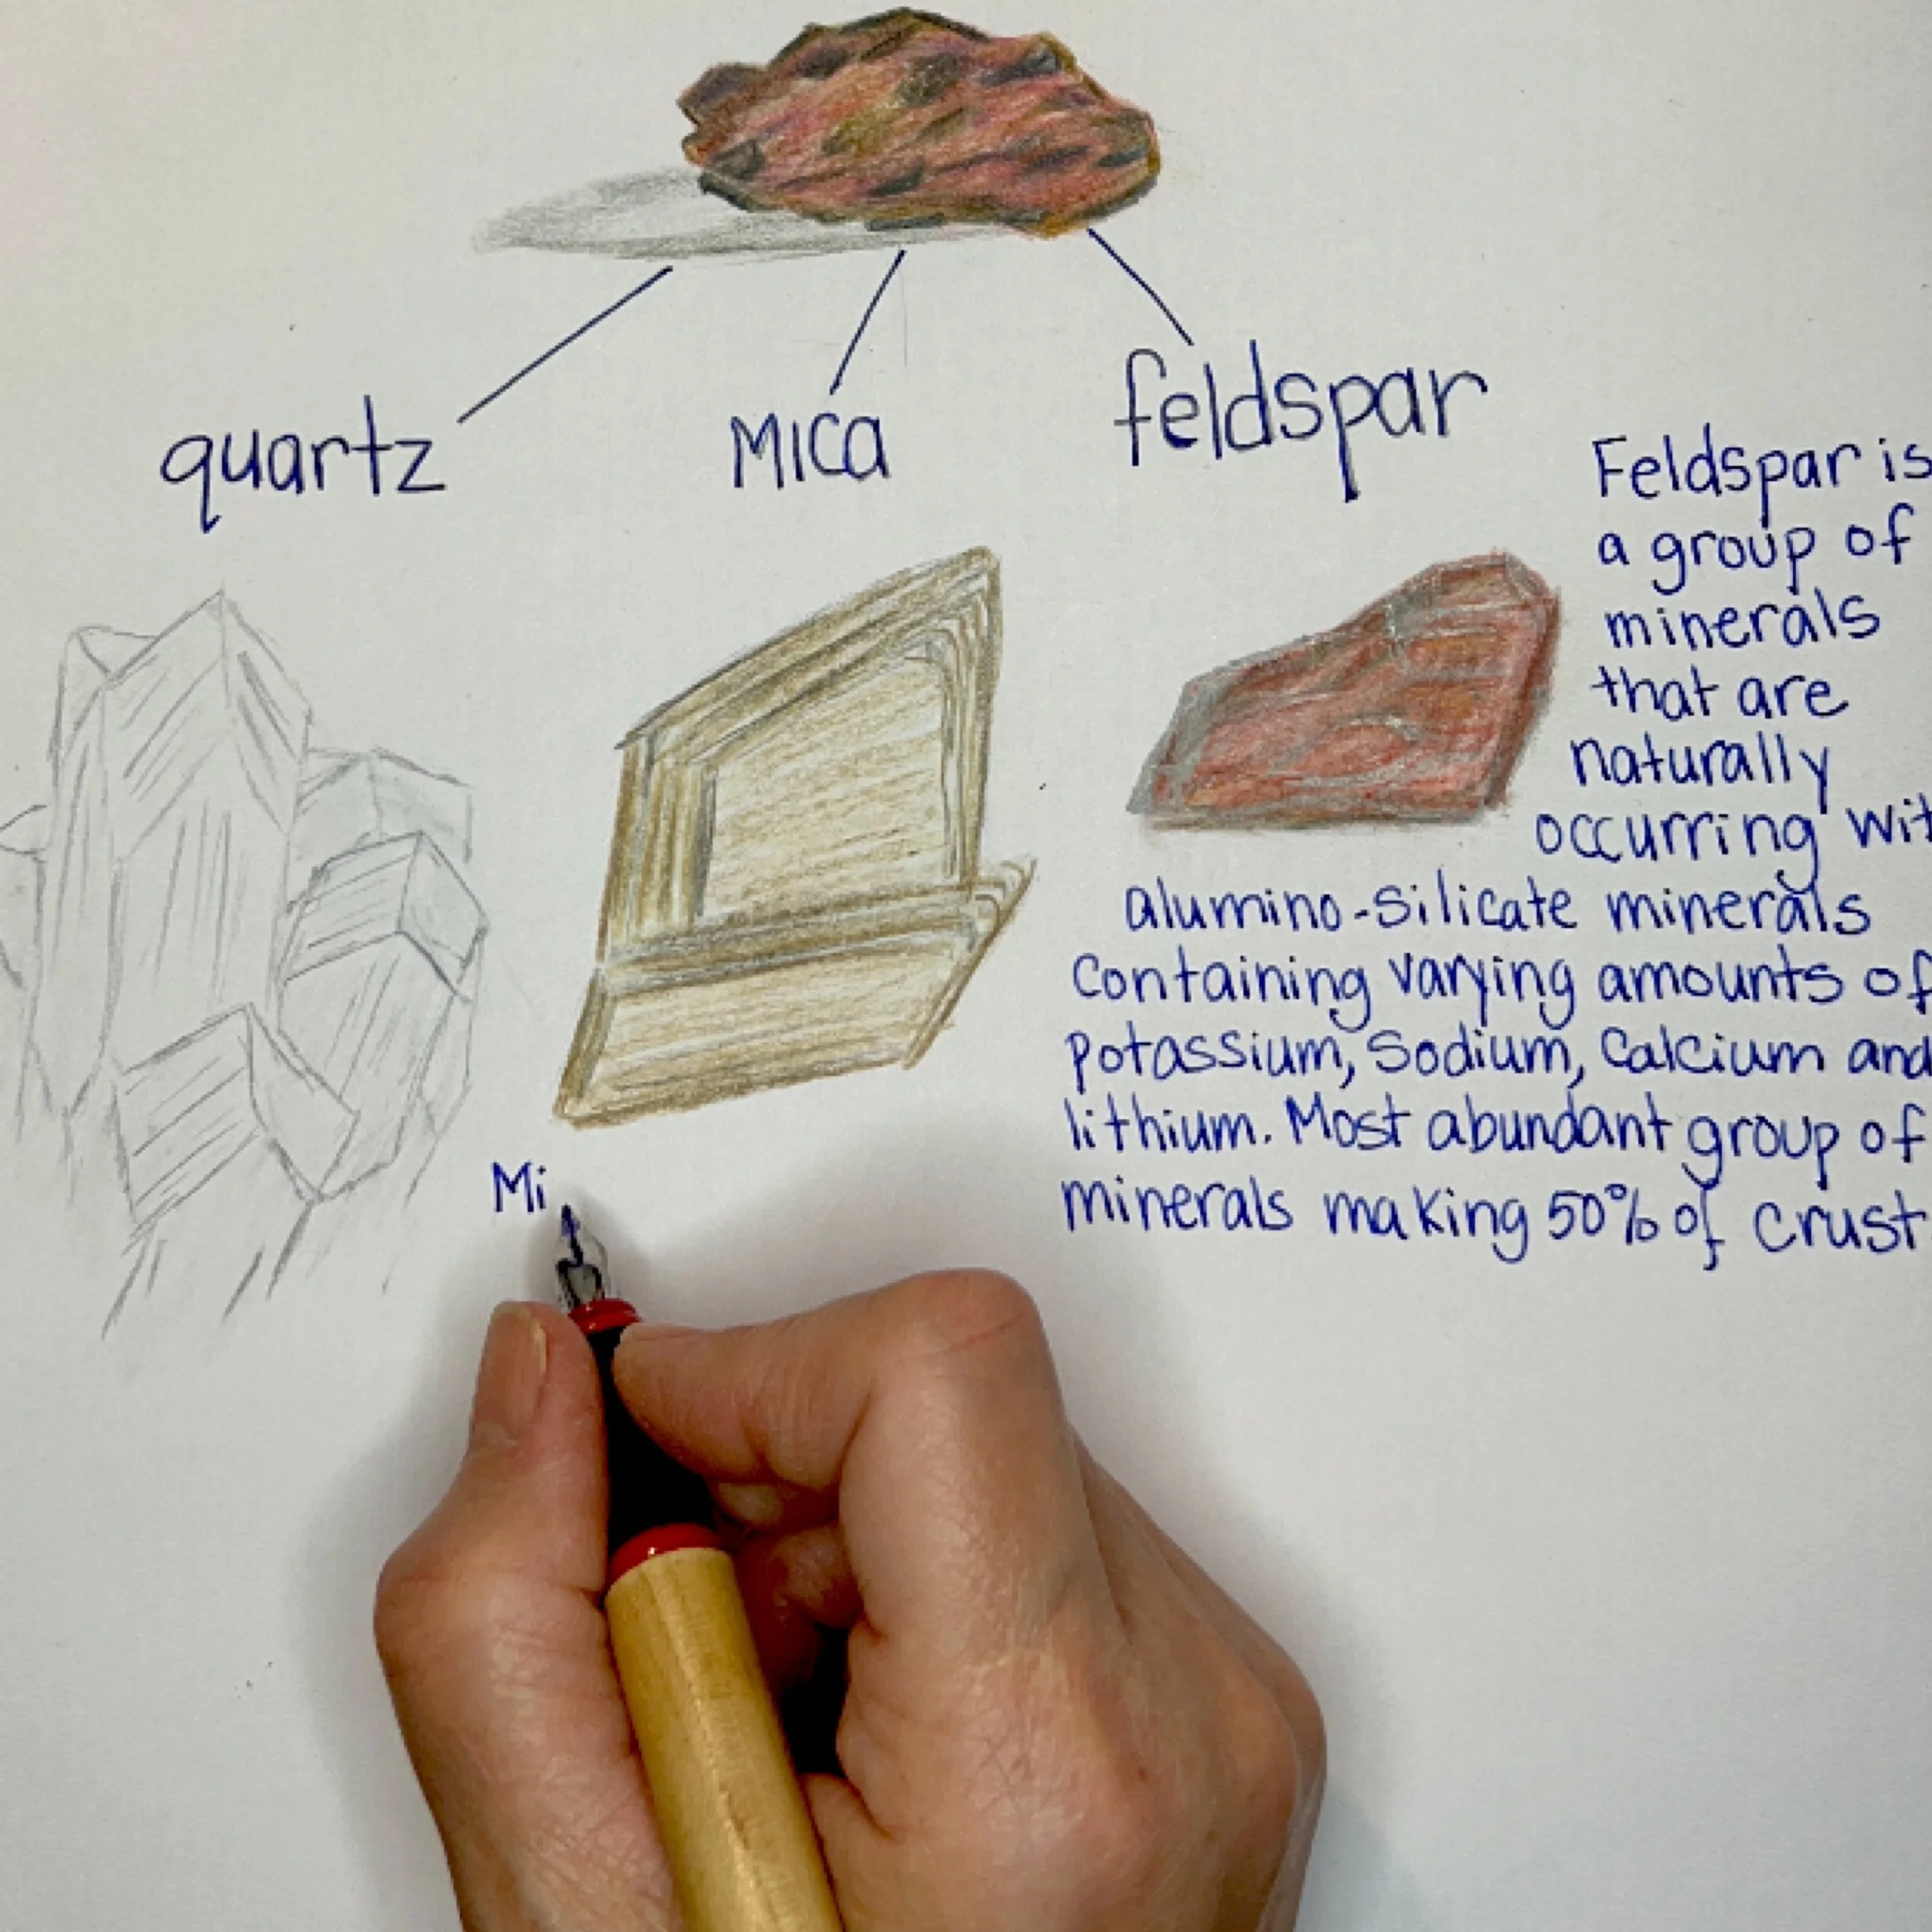 quartz
MICA
feldspar
Feldspar is
a group of
minerals
that are
naturally
occurring wit
alumino-silicate minerals
containing varying amounts of
potassium, sodium, calcium and
lithium. Most abundant group of
minerals making 50% of crust.
Mi